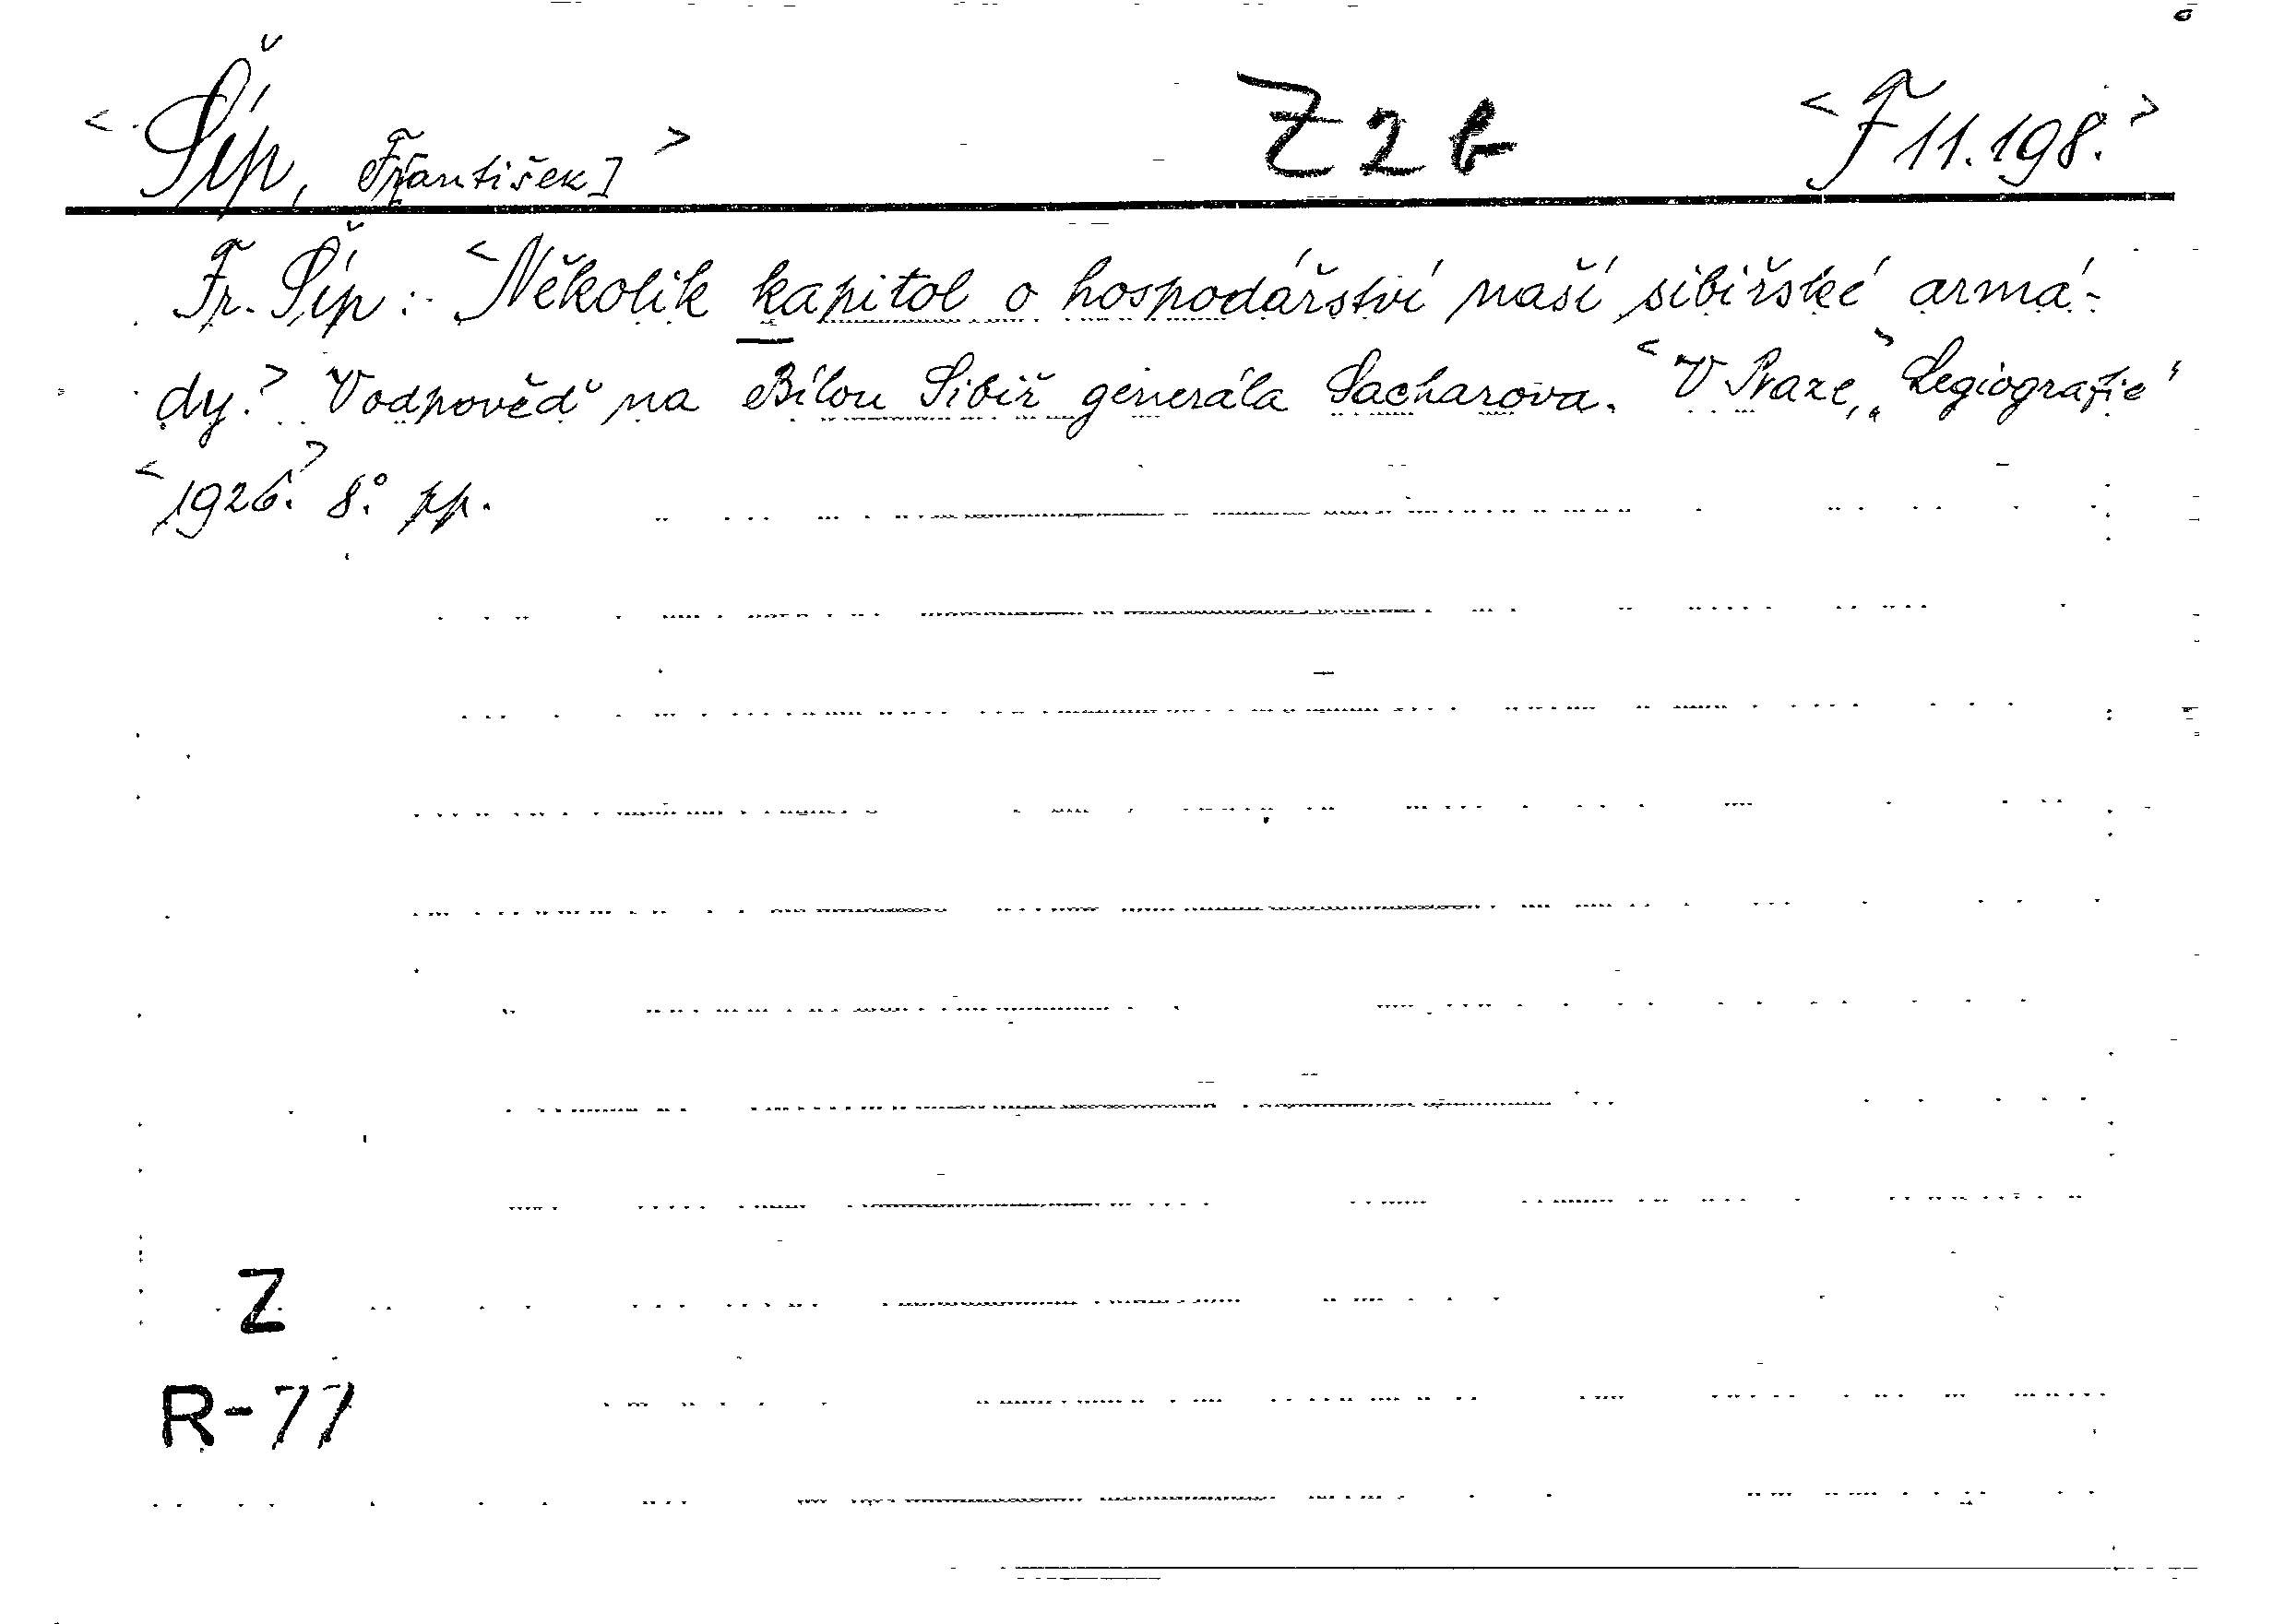 <Šíp, František]> Z2b <F 11.198.>
Fr. Šíp: <Několik kapitol o hospodářství naší sibiřské armá-
dy.> V odpověď na Bílou Sibiř generála Sacharova. <V Praze, „Legiografie"
<1926.> 8° pp.
Z
R-77